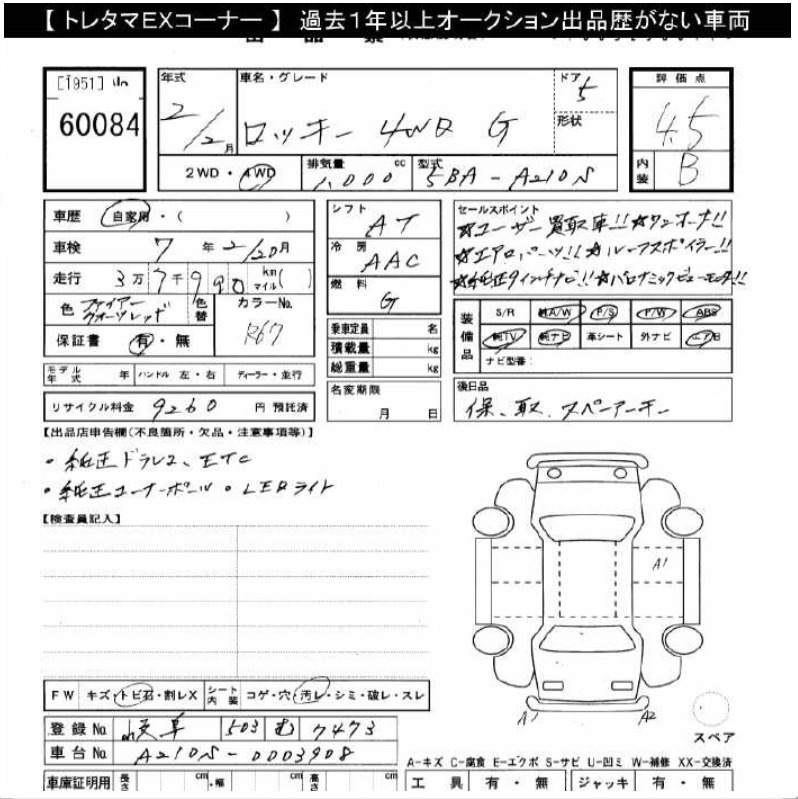 【 トレタマEXコーナー 】 過去1年以上オークション出品歴がない車両
[1951]
60084
年式
2/2月
車名・グレード
ロッキー 4WD G
ドア
5
形状
評価点
4.5
内装
B
2WD・4WD
排気量 cc
1,000
型式
5BA-A210S
車歴 自家用・( )
車検 7年2/20月
走行 3万7千990 km マイル( )
色 ファイアークオーツレッド
色替
カラーNo.
R67
保証書 有・無
モデル年式 年 ハンドル 左・右 ディーラー・並行
リサイクル料金 9260 円 預託済
シフト
AT
冷房
AAC
燃料
G
乗車定員 名
積載量 kg
総重量 kg
名変期限
月 日
セールスポイント
☆ユーザー買取車!!☆ワンオーナー!!
☆エアロパーツ!!☆ルーフスポイラー!!
☆純正9インチナビ!!☆パノラミックビューモニター!!
装備品
S/R 純A/W P/S P/W ABS
純TV 純ナビ 革シート 外ナビ エアB
ナビ型番:
後日品
保、取、スペアーキー
【出品店申告欄(不良箇所・欠品・注意事項等)】
・純正ドラレコ、ETC
・純正コーナーポール・LEDライト
【検査員記入】
A1
A1
A2
スペア
FW キズ・トビ石・割レX シート内装 コゲ・穴・汚レ・シミ・破レ・スレ
登録No. 岐阜 503 む 7473
車台No. A210S-0003908
A-キズ C-腐食 E-エクボ S-サビ U-凹ミ W-補修 XX-交換済
車庫証明用 長さ cm・幅 cm 高さ cm
工具 有・無 ジャッキ 有・無